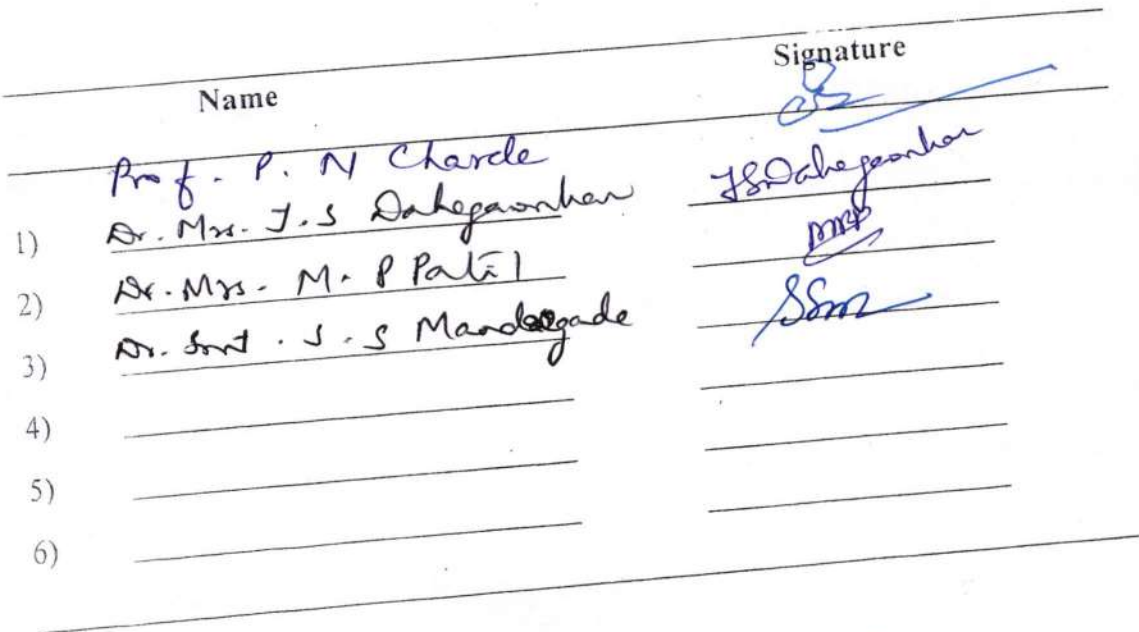 Name Signature
Prof. P. N Charde
1) Dr. Mrs. J. S Dahegaonkar JSDahegaonkar
2) Dr. Mrs. M. P Patil MPP
3) Dr. Smt. S. S Mandavgade SSm
4)
5)
6)